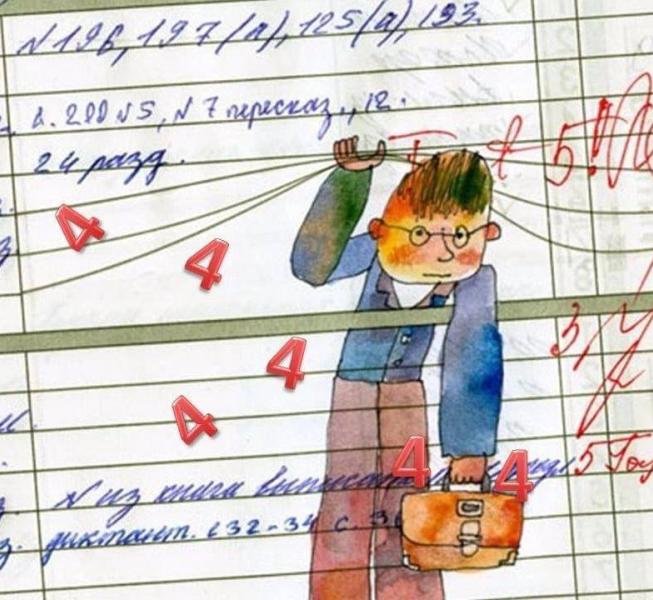 №196, 197(а), 125(а), 193.
§. 200 №5, №7 пересказ., 12.
24 разд.
5!
4
4
3,
4
4
4
4
5
№ из книги выписать
диктант. с 32-34 с. 3